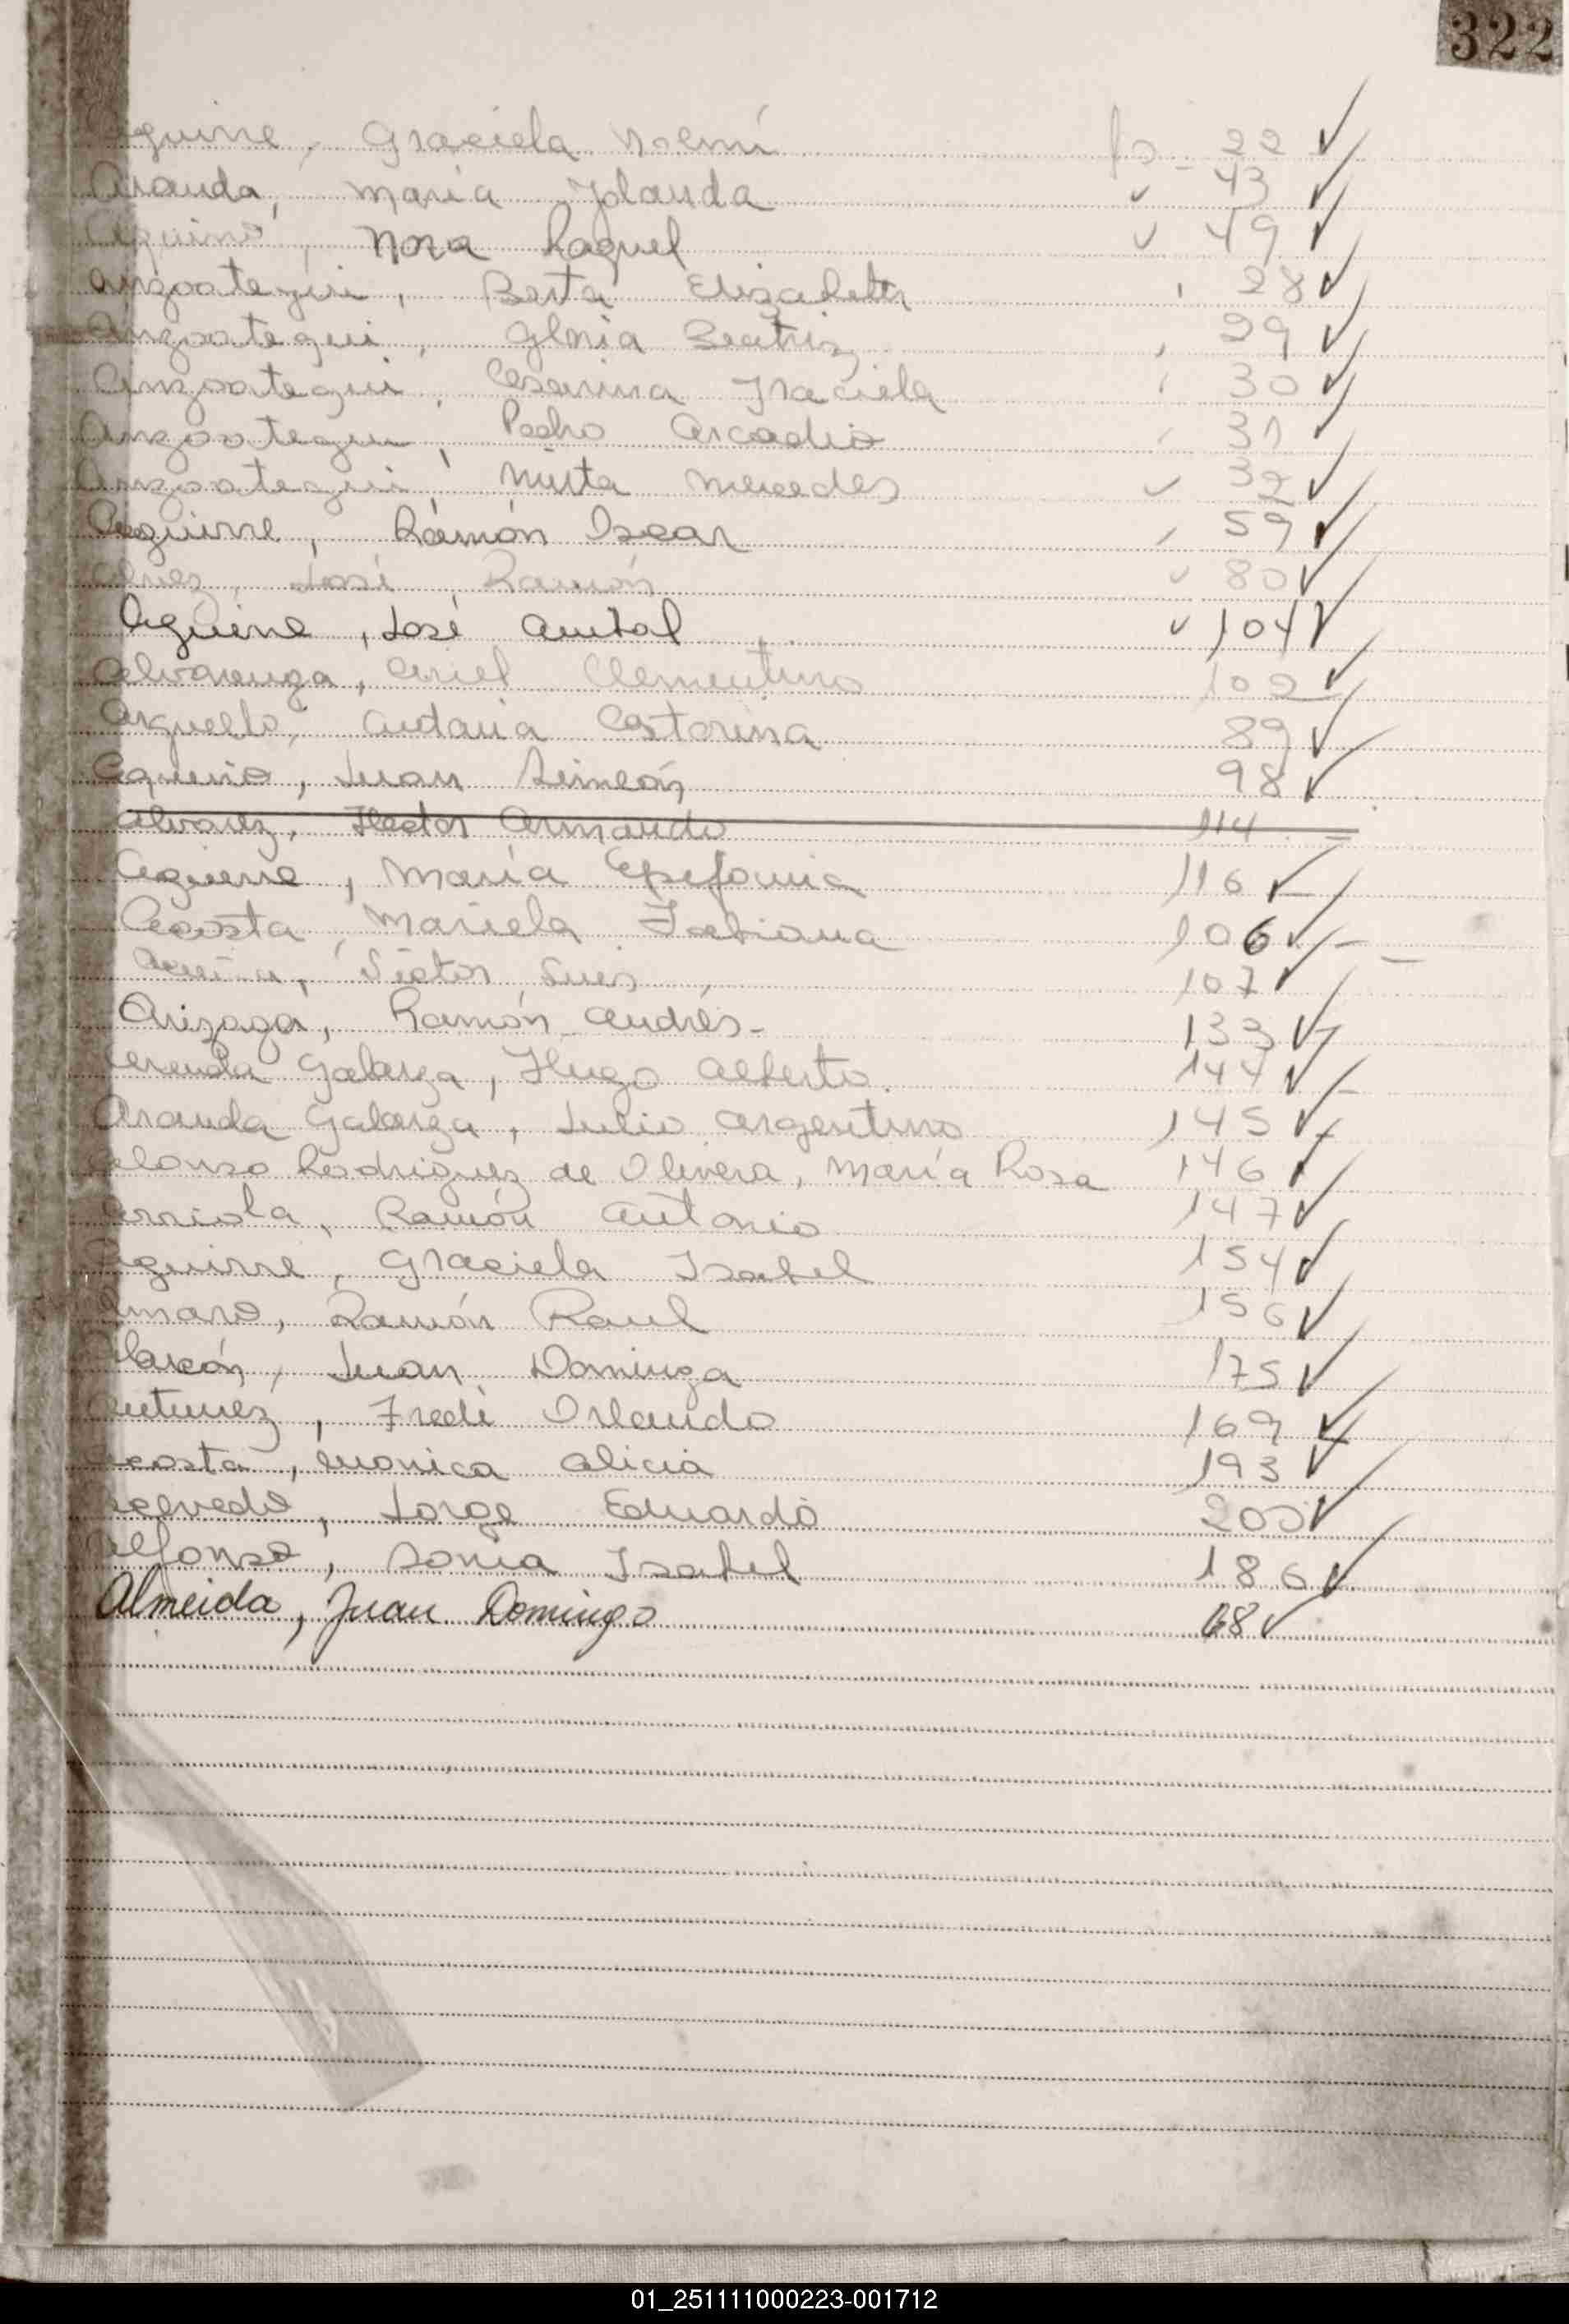 322
Aguirre, Graciela Noemí fo - 22 ✓
Aranda, María Yolanda ✓ 43 ✓
Aquino, Nora Raquel ✓ 49 ✓
Anzoategui, Berta Elizabeth , 28 ✓
Anzoategui, Gloria Beatriz , 29 ✓
Anzoategui, Cesarina Graciela , 30 ✓
Anzoategui, Pedro Arcadio , 31 ✓
Anzoategui, Mirta Mercedes ✓ 32 ✓
Aguirre, Ramón Oscar , 59 ✓
José Ramón ✓ 80 ✓
Aguirre, José ✓ 104 ✓
Alvarenga, Ariel Clementino 102 ✓
Arguello, Catorina 89 ✓
Aquino, Juan Simeón 98 ✓
Alvarez, Hector Armando 114
Aguirre, María Epifania 116 ✓
Acosta, Mariela Fabiana 106 ✓
Acuña, Victor Luis 107 ✓
Arizaga, Ramón Andrés - 133 ✓
Aranda Galarza, Hugo Alberto. 144 ✓
Aranda Galarza, Julio Argentino 145 ✓
Alonso Rodriguez de Olivera, María Rosa 146 ✓
Arriola, Ramón Antonio 147 ✓
Aguirre, Graciela Isabel 154 ✓
Amaro, Ramón Raul 156 ✓
Alarcón, Juan Dominga 175 ✓
Antunez, Fredi Orlando 169 ✓
Acosta, Monica Alicia 193 ✓
Acevedo, Jorge Eduardo 200 ✓
Alfonso, Sonia Isabel 186 ✓
Almeida, Juan Domingo 68 ✓
01_251111000223-001712